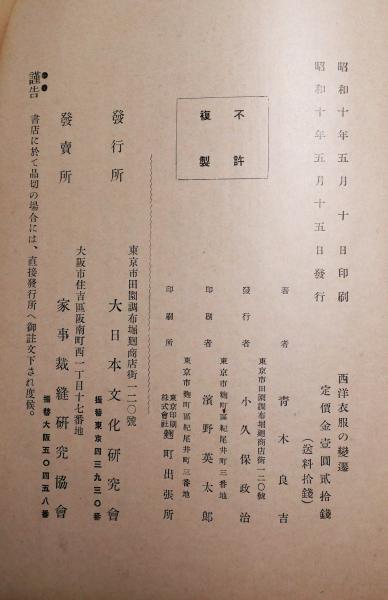 昭和十年五月十日印刷
昭和十年五月十五日發行
西洋衣服の變遷
定價金壹圓貳拾錢
(送料拾錢)
不許
複製
著者 青木良吉
東京市田園調布堀廻商店街一二〇號
發行者 小久保政治
東京市麴町區紀尾井町三番地
印刷者 濱野英太郎
東京市麴町區紀尾井町三番地
印刷所 東京印刷株式會社麴町出張所
東京市田園調布堀廻商店街一二〇號
發行所 大日本文化研究會
振替東京四三九三〇番
大阪市住吉區阪南町西一丁目十七番地
發賣所 家事裁縫研究協會
振替大阪五〇四五八番
謹告 書店に於て品切の場合には、直接發行所へ御註文下され度候。